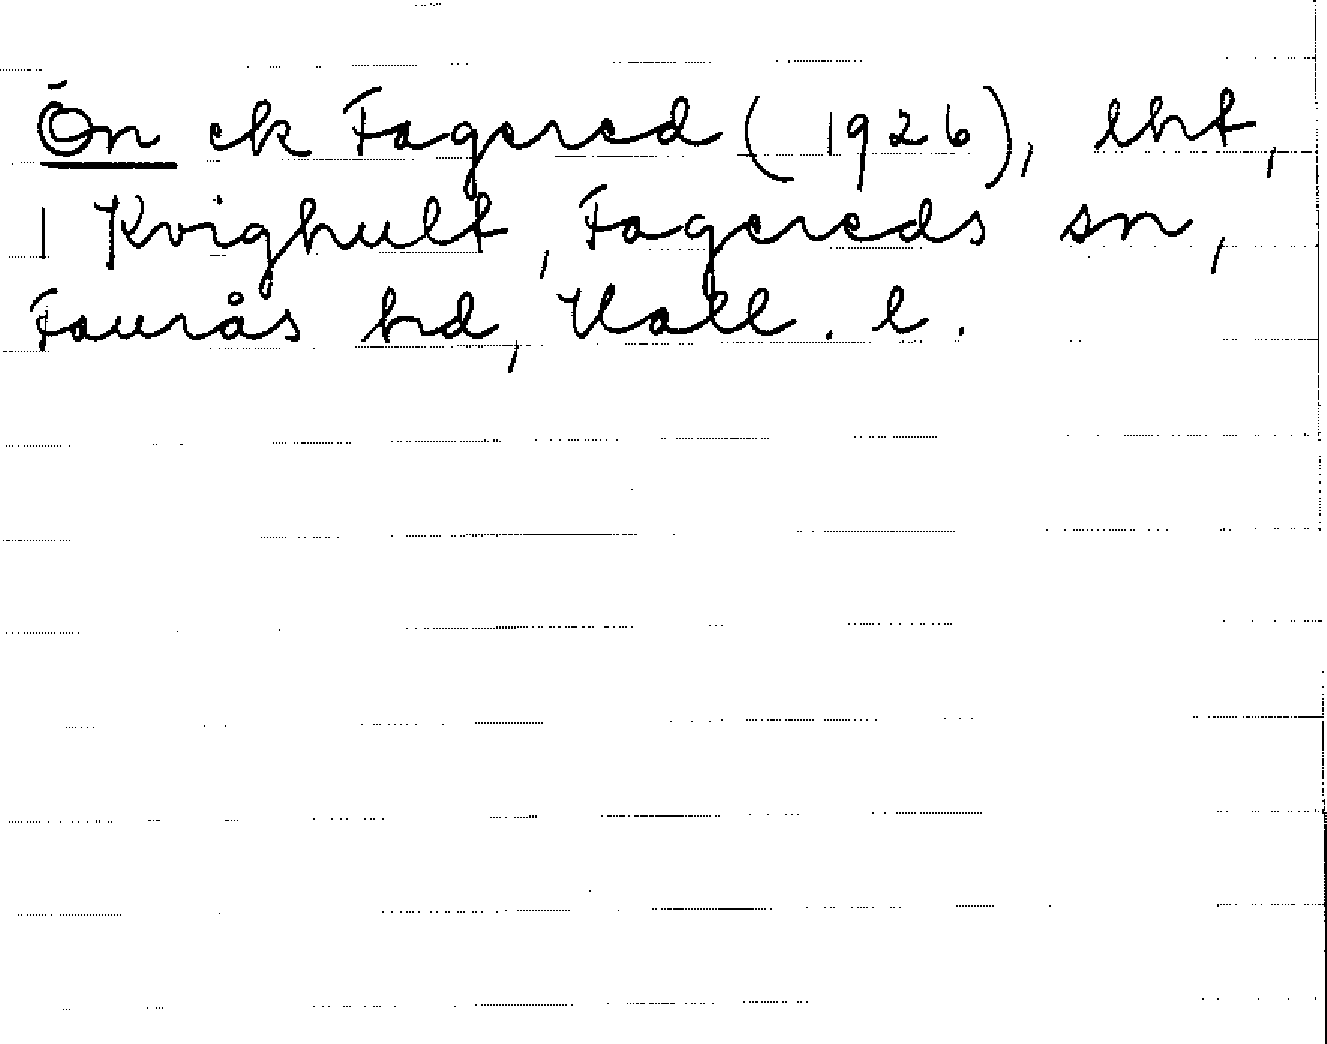 Ön ek Fagered (1926), lht,
1 Kvighult, Fagereds sn,
Faurås hd, Hall. l.